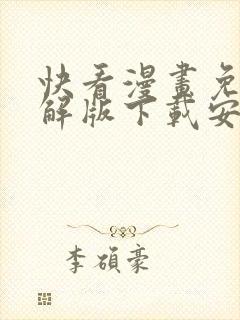 快看漫畫免
解版下載安
李碩豪